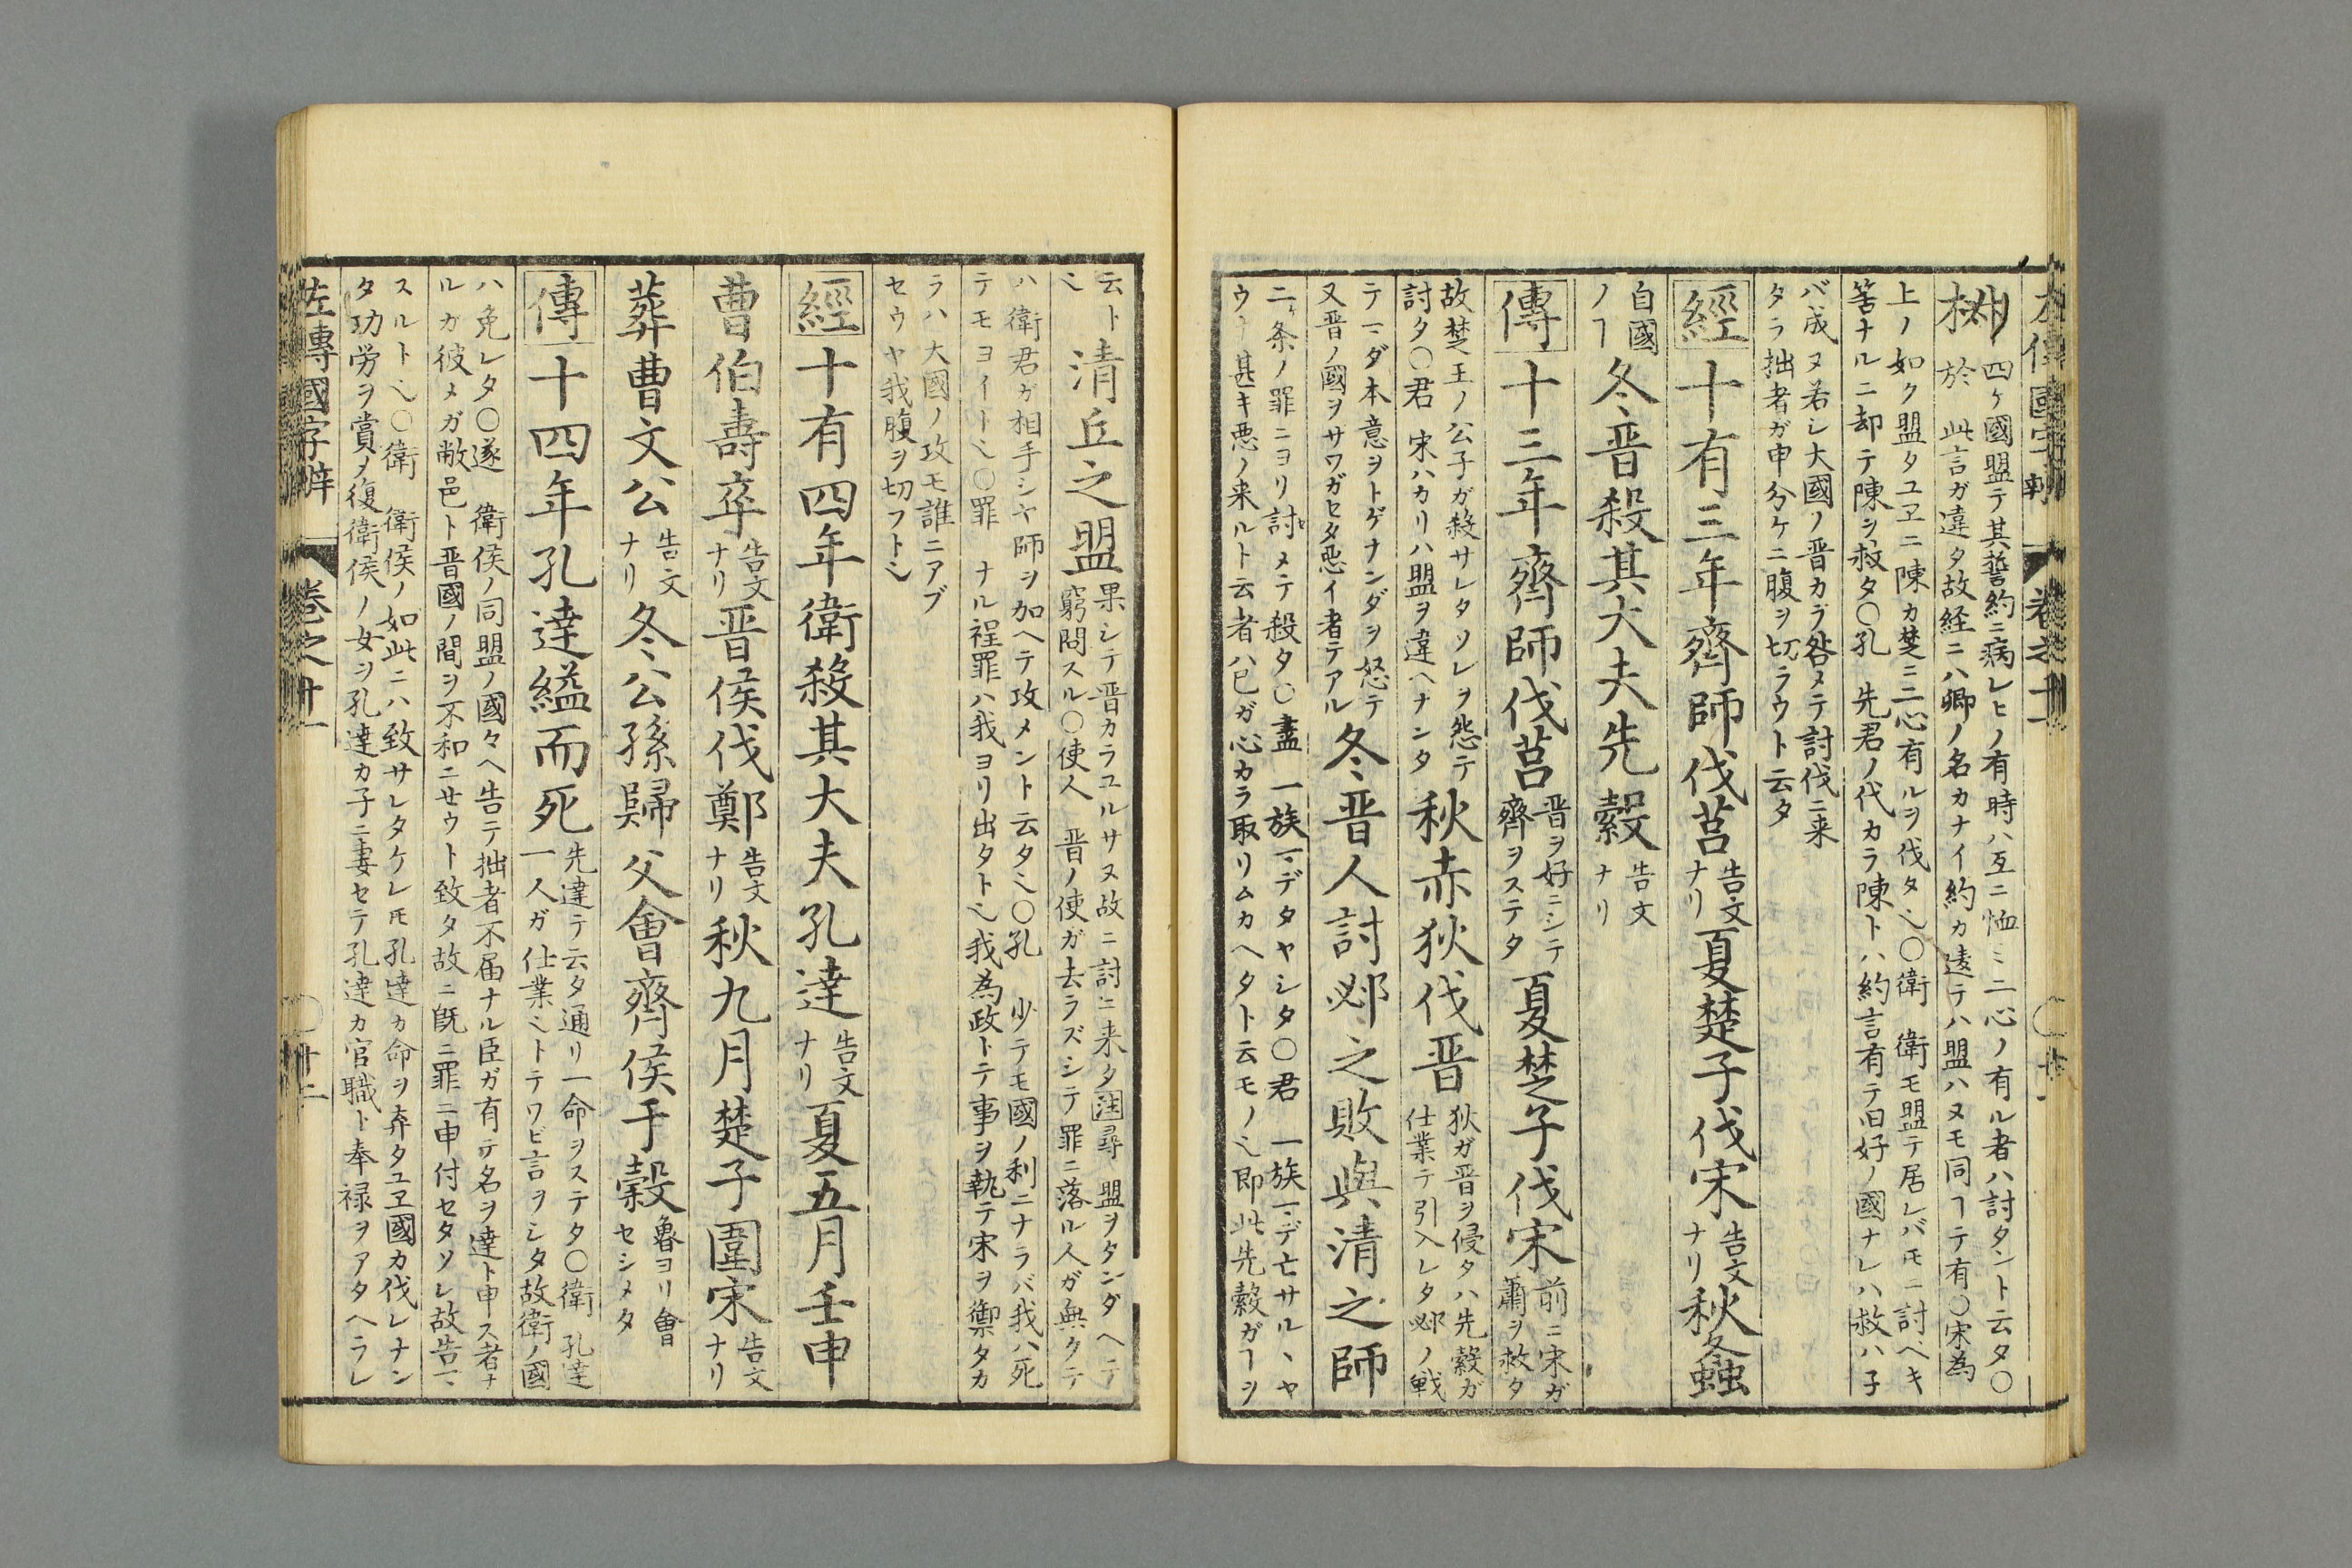 左傳國字辨 卷之十一 〇廿一
四ケ國盟テ其誓約ニ病レヒノ有時ハ互ニ恤ミ二心ノ有ル者ハ討タント云タ〇
於 此言ガ違タ故経ニハ卿ノ名カナイ約カ違テハ盟ハヌモ同ヿテ有〇宋為
上ノ如ク盟タユヱニ陳カ楚ニ二心有ルヲ伐タ〇衛 衛モ盟テ居レバ𪜈ニ討ベキ
筈ナルニ却テ陳ヲ救タ〇孔 先君ノ代カラ陳トハ約言有テ旧好ノ國ナレハ救ハ子
バ成ヌ若シ大國ノ晋カラ咎メテ討伐ニ来
タラ拙者ガ申分ケニ腹ヲ切ラウト云タ
經十有三年齊師伐莒 告文ナリ 夏楚子伐宋 告文ナリ 秋螽
自國ノヿ 冬晋殺其大夫先縠 告文ナリ
傳十三年齊師伐莒 晋ヲ好ニシテ齊ヲステタ 夏楚子伐宋 前ニ宋ガ蕭ヲ救タ
故楚王ノ公子ガ殺サレタソレヲ怨テ
討タ〇君 宋ハカリハ盟ヲ違ヘナンタ 秋赤狄伐晋 狄ガ晋ヲ侵タハ先縠ガ仕業テ引入レタ邲ノ戦
テマダ本意ヲトゲナンダヲ怒テ
又晋ノ國ヲサワガセタ悪イ者テアル 冬晋人討邲之敗與清之師
二ケ条ノ罪ニヨリ討メテ殺タ〇盡 一族マデタヤシタ〇君 一族マデ亡サルヽヤ
ウヿ甚キ悪ノ来ルト云者ハ已ガ心カラ取リムカヘタト云モノ即此先縠ガヿヲ
云ト 清丘之盟 果シテ晋カラユルサヌ故ニ討ニ来タ 注尋 盟ヲタンダヘテ
窮問スル〇使人 晋ノ使ガ去ラズシテ罪ニ落ル人ガ無クテ
ハ衛君ガ相手シヤ師ヲ加ヘテ攻メント云タ〇孔 少テモ國ノ利ニナラバ我ハ死
テモヨイト〇罪 ナル程罪ハ我ヨリ出タト我為政トテ事ヲ執テ宋ヲ禦タカ
ラハ大國ノ攻モ誰ニアブ
セウヤ我腹ヲ切フト
經十有四年衛殺其大夫孔達 告文ナリ 夏五月壬申
曹伯壽卒 告文ナリ 晋侯伐鄭 告文ナリ 秋九月楚子圍宋 告文ナリ
葬曹文公 告文ナリ 冬公孫歸父會齊侯于穀 魯ヨリ會セシメタ
傳十四年孔達縊而死 先達テ云タ通リ一命ヲステタ〇衛 孔達
一人ガ仕業トテワビ言ヲシタ故衛ノ國
ハ免レタ〇遂 衛侯ノ同盟ノ國々ヘ告テ拙者不届ナル臣ガ有テ名ヲ達ト申ス者ナ
ルガ彼メガ敝邑ト晋國ノ間ヲ不和ニせウト致タ故ニ既ニ罪ニ申付セタソレ故告マ
スルト〇衛 衛侯ノ如此ニハ致サレタケレ𪜈孔達カ命ヲ弃タユヱ國カ伐レナン
タ功労ヲ賞〆復衛侯ノ女ヲ孔達カ子ニ妻セテ孔達カ官職ト奉禄ヲアタヘラレ
左傳國字辨 卷之十一 〇廿二